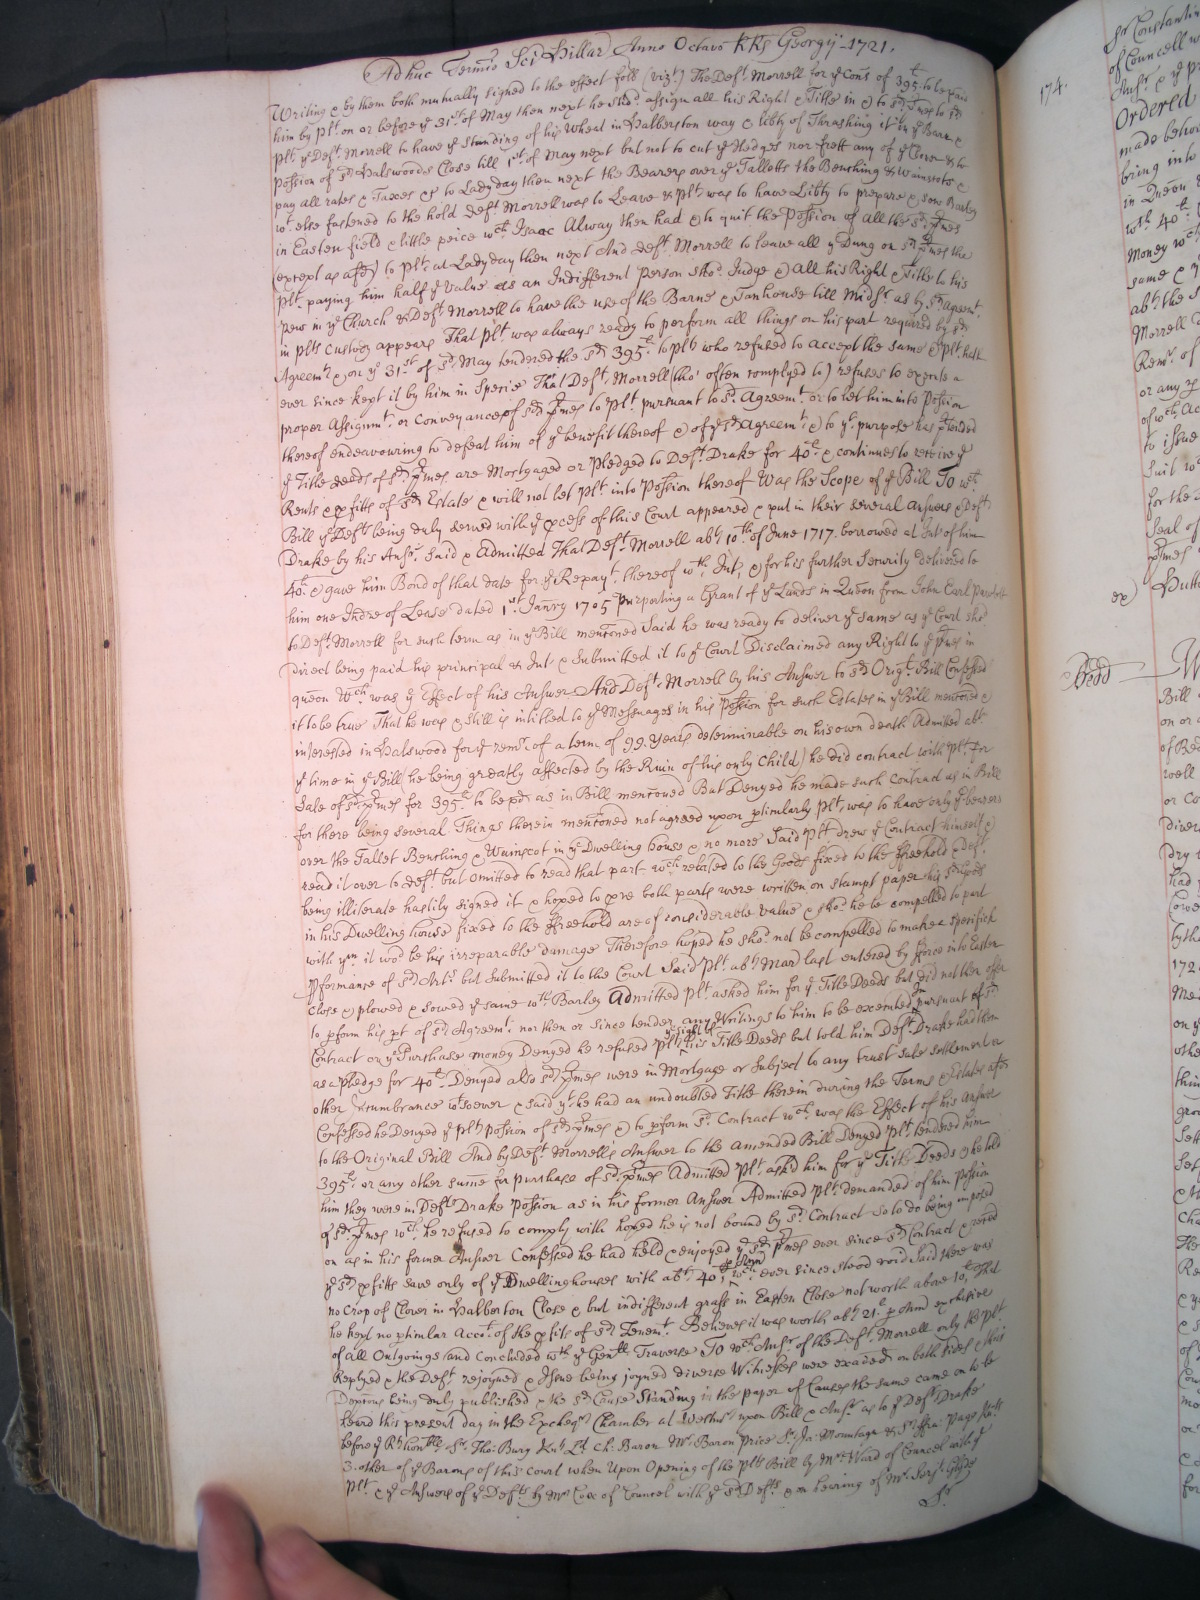 Adhuc Termio Sci Hillar Anno Octavo RRs Georgij 1721.
Writing & by them both mutually signed to the effect foll (vizt) The Deft Morrell for ye Cons of 395l to be paid
him by plt on or before ye 31st of May then next he shod assign all his Right & Title in & to sd pmes to sd
plt ye Deft Morrell to have ye standing of his Wheat in Halberton way & libty of Thrashing it in ye Barn &
possion of sd Halswoods Close till 1st of May next but not to cut ye Hedges nor frett any of ye Clover & to
pay all rates & Taxes &c to Ladyday then next the Bearers over ye Talletts the Benching & Wainscots &
wt else fastened to the hold Deft Morrell was to Leave & plt was to have Libty to prepare & sow Barley
in Easten field & little peice wch Isaac Alway then had & to quit the possion of all the sd pmes
(except as afd) to plt at Ladyday then next And Deft Morrell to leave all ye Dung on sd pmes the
plt paying him half ye Value as an Indifferent person shod Judge & all his Right & Title to his
pew in ye Church & Deft Morrell to have the use of the Barne & Tanhouse till Midsr as by sd agreemt
in plts custody appears That plt was always ready to perform all things on his part required by sd
Agreemt & on ye 31st of sd May tendered the sd 395l to plt who refused to accept the same & plt hath
ever since kept it by him in Specie That Deft Morrell (tho' often complyed to) refuses to execute a
proper Assignmt or Conveyance of sd pmes to plt pursuant to sd Agreemt or to let him into possion
thereof endeavouring to defeat him of ye benefit thereof & of ye sd Agreemt & to yt purpose has ptended
ye Title deeds of sd pmes are Mortgaged or pledged to Deft Drake for 40l & continues to receive ye
Rents & pfitts of sd Estate & will not let plt into possion thereof Was the Scope of ye Bill To wch
Bill ye Defts being duly served with ye pcess of this Court appeared & put in their several answers & Deft
Drake by his Ansr said & Admitted That Deft Morrell abt 10th of June 1717 borrowed at Int of him
40l & gave him Bond of that date for ye Repayt thereof wth Int & for his further Security delivered to
him one Indre of Lease dated 1st Janry 1705 purporting a Grant of ye Lands in Queon from John Earl
to Deft Morrell for such term as in ye Bill menconed Said he was ready to deliver ye same as ye Court shod
direct being paid his principal & Int & Submitted it to ye Court Disclaimed any Right to ye pmes in
queon Wch was ye Effect of his Answer And Deft Morrell by his Answer to sd Origl Bill Confessed
it to be true That he was & still is intitled to ye Messuages in his possion for such Estates in ye Bill menconed &
interested in Halswood for ye remr of a term of 99 years determinable on his own death Admitted abt
ye time in ye Bill (he being greatly affected by the Ruin of his only Child) he did contract with plt for
Sale of sd pmes for 395l to be pd as in Bill menconed But Denyed he made such Contract as in Bill
for there being several Things therein menconed not agreed upon pticularly plt was to have only ye bearers
over the Tallet Benching & Wainscot in ye Dwelling house & no more Said plt drew ye Contract himself &
read it over to Deft but omitted to read that part wch related to the Goods fixed to the ffreehold & Deft
being illiterate hastily signed it & hoped to pve both parts were written on stampt paper his sd goods
in his Dwelling house fixed to the ffreehold are of considerable value & shod he be compelled to part
with ym it wod be his irreparable damage Therefore hoped he shod not be compelled to make a specifick
pformance of sd Arts but submitted it to the Court Said plt abt Mar last entered by fforce into Easter
Close & plowed & sowed ye same wth Barley Admitted plt asked him for ye Title Deeds but did not then offer
to pform his pt of sd Agreemt nor then or since tender any Writings to him to be executed pursuant to sd
Contract or ye Purchase money Denyed he refused plt ye sight of his Title Deeds but told him Deft Drake had them
as a pledge for 40l Denyed also sd pmes were in Mortgage or Subject to any trust sale settlement or
other Incumbrance wtsoever & said yt he had an undoubted Title therein during the Terms & Estates afd
Confessed he Denyed ye plt possion of sd pmes & to pform sd Contract wch was the Effect of his Answer
to the Original Bill And by Deft Morrell's Answer to the amended Bill Denyed plt tendered him
395l or any other summe for purchase of sd pmes Admitted plt ask'd him for ye Title Deeds & he told
him they were in Deft Drake possion as in his former Answer Admitted plt demanded of him possion
of sd pmes wch he refused to comply with hoped he is not bound by sd Contract so to do being imposed
on as in his former Answer Confessed he had held & enjoyed ye sd pmes ever since sd Contract & reced
ye sd pfitts save only of ye Dwellinghouses with abt 40l p Ann wch ever since stood void Said there was
no Crop of Clover in Halberton Close & but indifferent grass in Easten Close not worth above 10l That
he kept no pticular Accot of the pfits of sd Tenemt Believes it was worth abt 21l p Ann exclusive
of all Outgoings and Concluded wth ye Genll Traverse To wch Ansr of the Deft Morrell only the plt
Replyed & the Deft rejoyned & Issue being joyned diverse Witnesses were exaed on both sides & their
Depcons being duly published & the sd Cause Standing in the paper of Causes the same came on to be
heard this present day in the Excheqr Chamber at Westmr upon Bill & Ansr as to ye Deft Drake
before ye Rt honble Sr Tho: Bury Knt Ld Ch: Baron Mr Baron Price Sr Ja: Mountagu & Sr ffra: Page Knts
3 other of ye Barons of this Court when Upon Opening of the plts Bill by Mr Ward of Councel with ye
plt & ye Answers of ye Defts by Mr Coxe of Councel with ye sd Defts & on hearing of Mr Serjt Glyde
Sr
174.
Sr Constantin
of Councell w
Ansr & ye
Ordered
made
bring into
in Queon
wth 40l
Money wch
same & ye
abt the
Morrell
Remr of
or any
of wch
to issue
suit
for the
Seal of
pmes
ex
Bedd